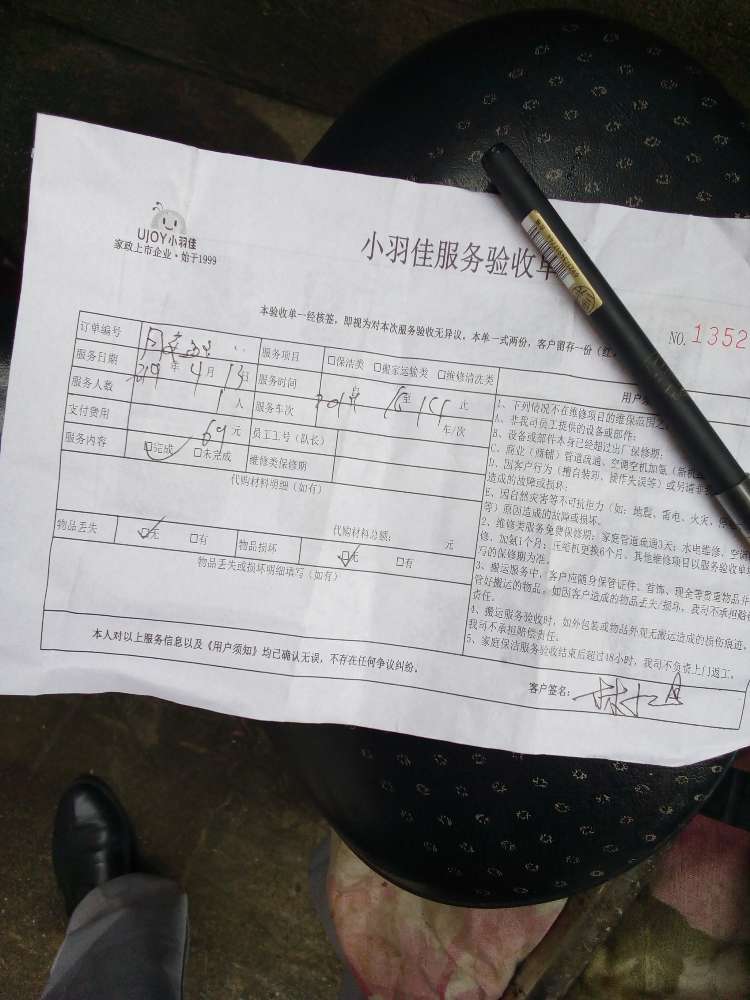 UJOY小羽佳
家政上市企业·始于1999
小羽佳服务验收单
NO. 1352
本验收单一经核签，即视为对本次服务验收无异议。本单一式两份，客户留存一份（红
订单编号
服务项目 □保洁类 □搬家运输类 □维修清洗类
服务日期 2019年4月13日 服务时间 至 止
服务人数 1人 服务车次 车/次
支付费用 69元 员工工号（队长）
服务内容 □完成 □未完成 维修类保修期
代购材料明细（如有）
代购材料总额： 元
物品丢失 □无 □有 物品损坏 □无 □有
物品丢失或损坏明细填写（如有）
用户
1、下列情况不在维修项目的维保范围之
A、非我司员工提供的设备或部件；
B、设备或部件本身已经超过出厂保修期；
C、商业（商铺）管道疏通、空调空机加氨（新机
D、因客户行为（增自装卸、操作失误等）或另请非
造成的故障或损坏；
E、因自然灾害等不可抗拒力（如：地震、雷电、火灾、
等）原因造成的故障或损坏。
2、维修类服务免费保修期：家庭管道疏通3天；水电维修、空调
修、加氨1个月；压缩机更换6个月。其他维修项目以服务验收单填
写的保修期为准。
3、搬运服务中，客户应随身保管证件、首饰、现金等贵重物品并
管好搬运的物品。如因客户造成的物品丢失/损坏，我司不承担赔
责任。
4、搬运服务验收时，如外包装或物品外观无搬运造成的损伤痕迹，
我司不承担赔偿责任。
5、家庭保洁服务验收结束后超过48小时，我司不负责上门返工。
本人对以上服务信息以及《用户须知》均已确认无误，不存在任何争议纠纷。
客户签名：